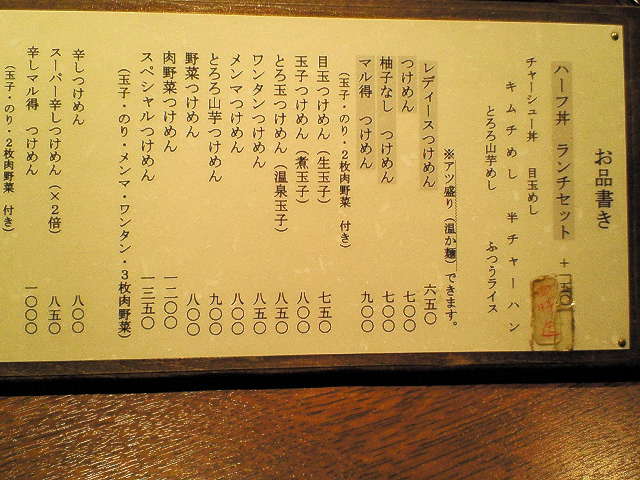 お品書き
ハーフ丼 ランチセット ＋一五〇
チャーシュー丼 目玉めし
キムチめし 半チャーハン
とろろ山芋めし ふつうライス
※アツ盛り（温か麺）できます。
レディースつけめん 六五〇
つけめん 七〇〇
柚子なし つけめん 七〇〇
マル得 つけめん 九〇〇
（玉子・のり・２枚肉野菜 付き）
目玉つけめん（生玉子） 七五〇
玉子つけめん（煮玉子） 八〇〇
とろ玉つけめん（温泉玉子） 八五〇
ワンタンつけめん 八五〇
メンマつけめん 八〇〇
とろろ山芋つけめん 九〇〇
野菜つけめん 八〇〇
肉野菜つけめん 一二〇〇
スペシャルつけめん 一三五〇
（玉子・のり・メンマ・ワンタン・３枚肉野菜）
辛しつけめん 八〇〇
スーパー辛しつけめん（×２倍） 八五〇
辛しマル得 つけめん 一〇〇〇
（玉子・のり・２枚肉野菜 付き）